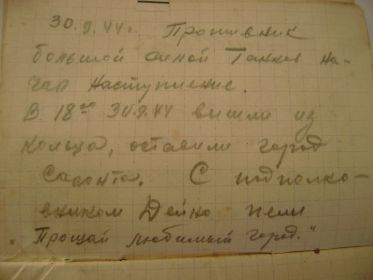 30.9.44г. Противник
большой силой Танков на-
чал наступление.
В 18⁰⁰ 30.9.44 вышли из
кольца, оставили город
Салонта. С подполко-
вником Дейко пели
"Прощай любимый город."